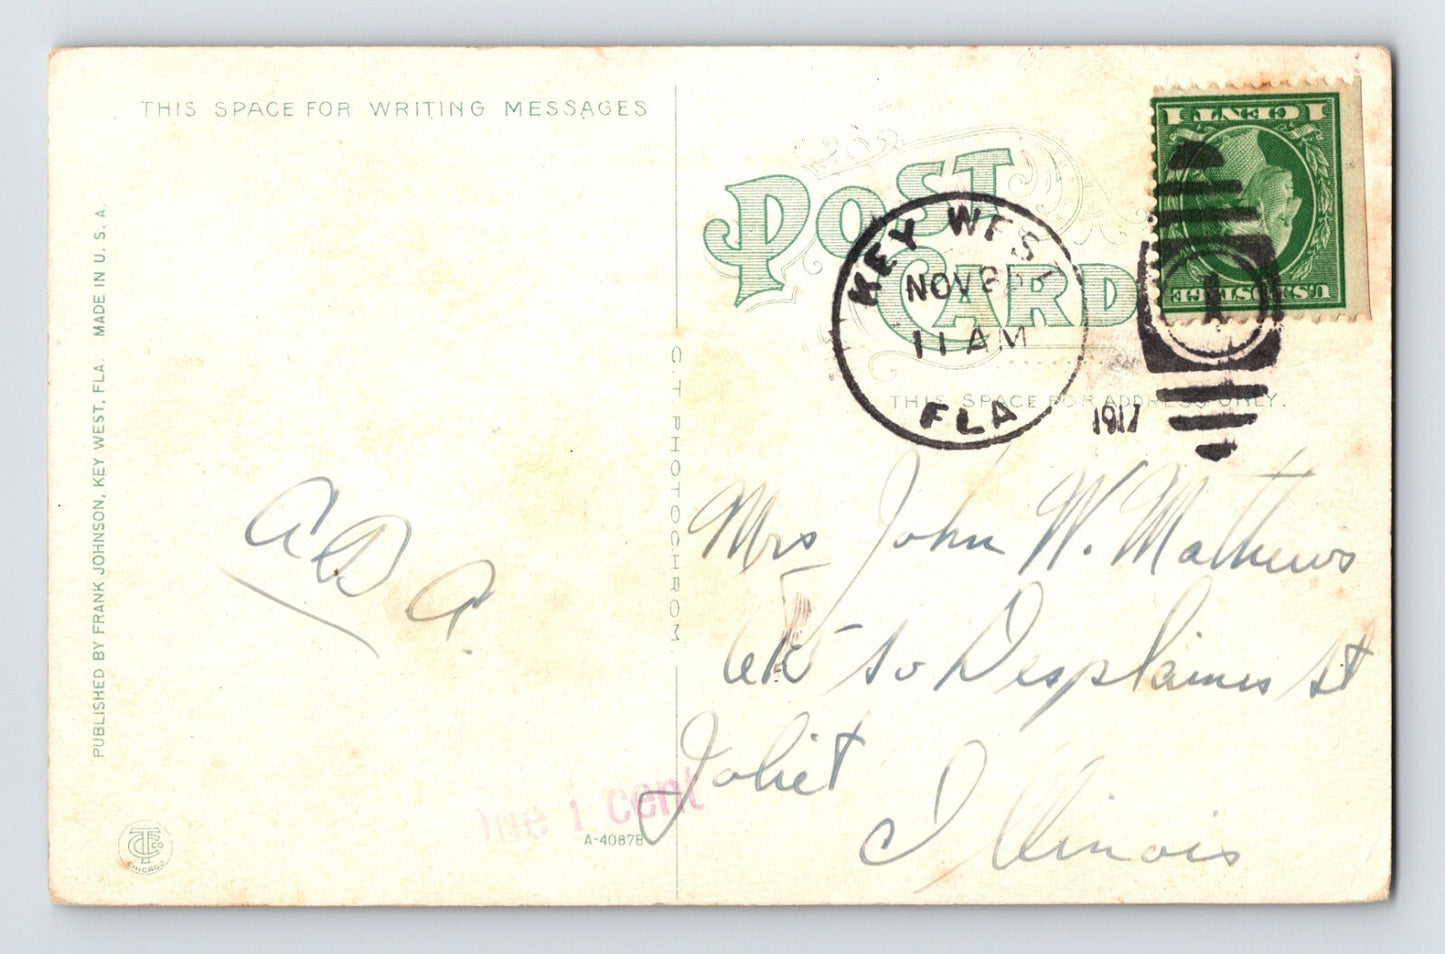 THIS SPACE FOR WRITING MESSAGES
PUBLISHED BY FRANK JOHNSON, KEY WEST, FLA. MADE IN U. S. A.
C T PHOTOCHROM
POST
CARD
THIS SPACE FOR ADDRESS ONLY.
1 CENT 1
U.S. POSTAGE
KEY WEST
NOV
11 AM
FLA
1917
1
Mrs John W. Mathews
So Desplaines St
Joliet
Illinois
1 cent
A-40878
CHICAGO